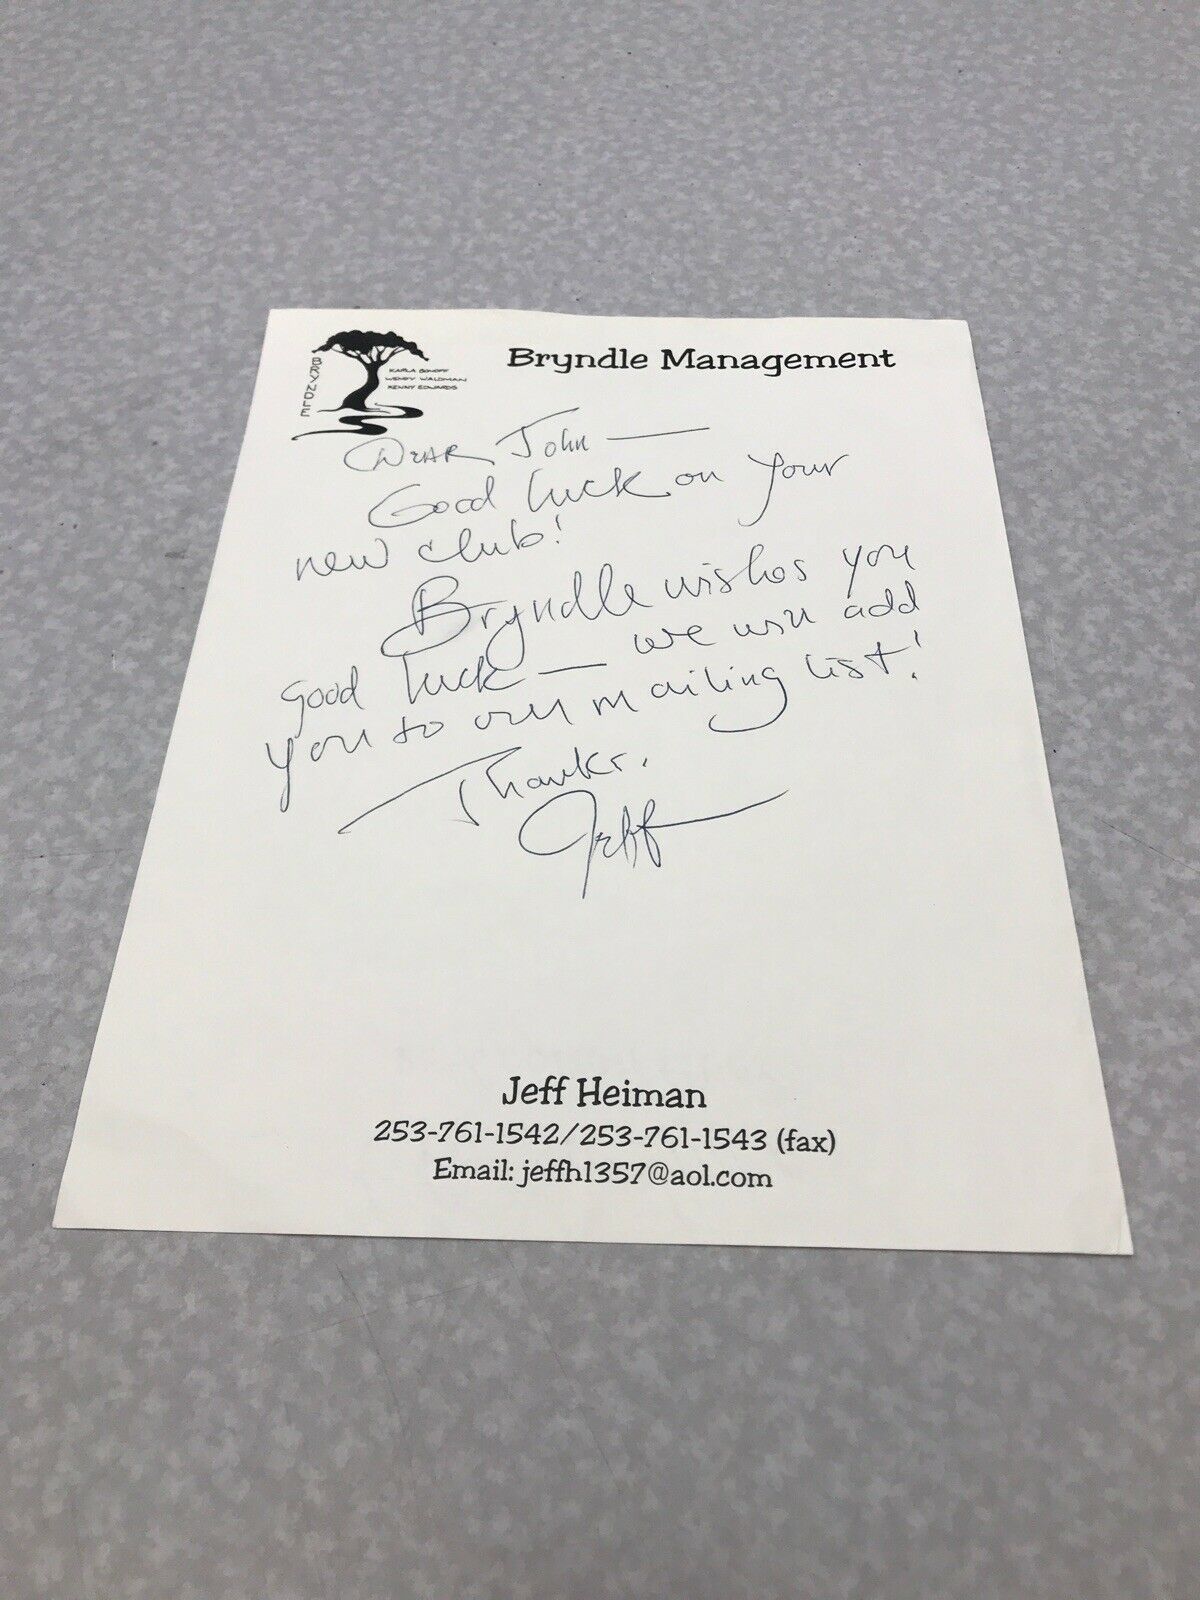 Bryndle Management
BRYNDLE
KARLA BONOFF
WENDY WALDMAN
KENNY EDWARDS
DEAR John —
Good luck on your
new club!
Bryndle wishes you
good luck — we will add
you to our mailing list!
Thanks.
Jeff
Jeff Heiman
253-761-1542/253-761-1543 (fax)
Email: jeffh1357@aol.com